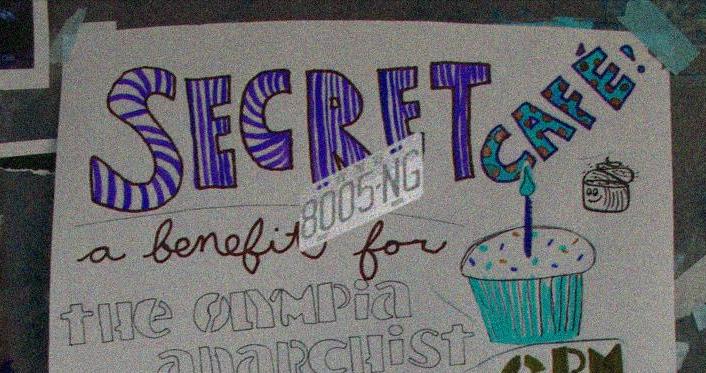 SECRET CAFÉ!
8005-NG
a benefit for
THE OLYMPia
anarCHist
6PM